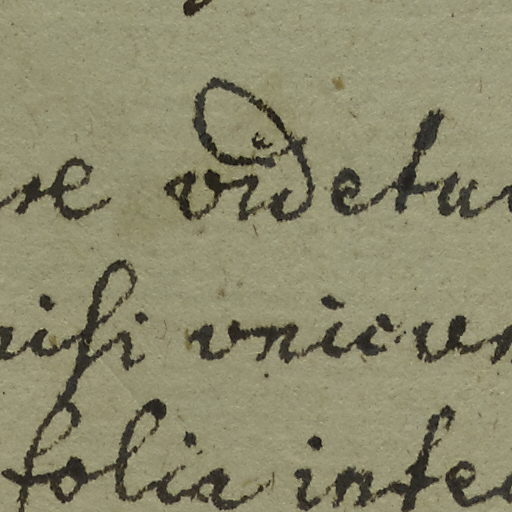 re videtur
nisi unicum
folia inte